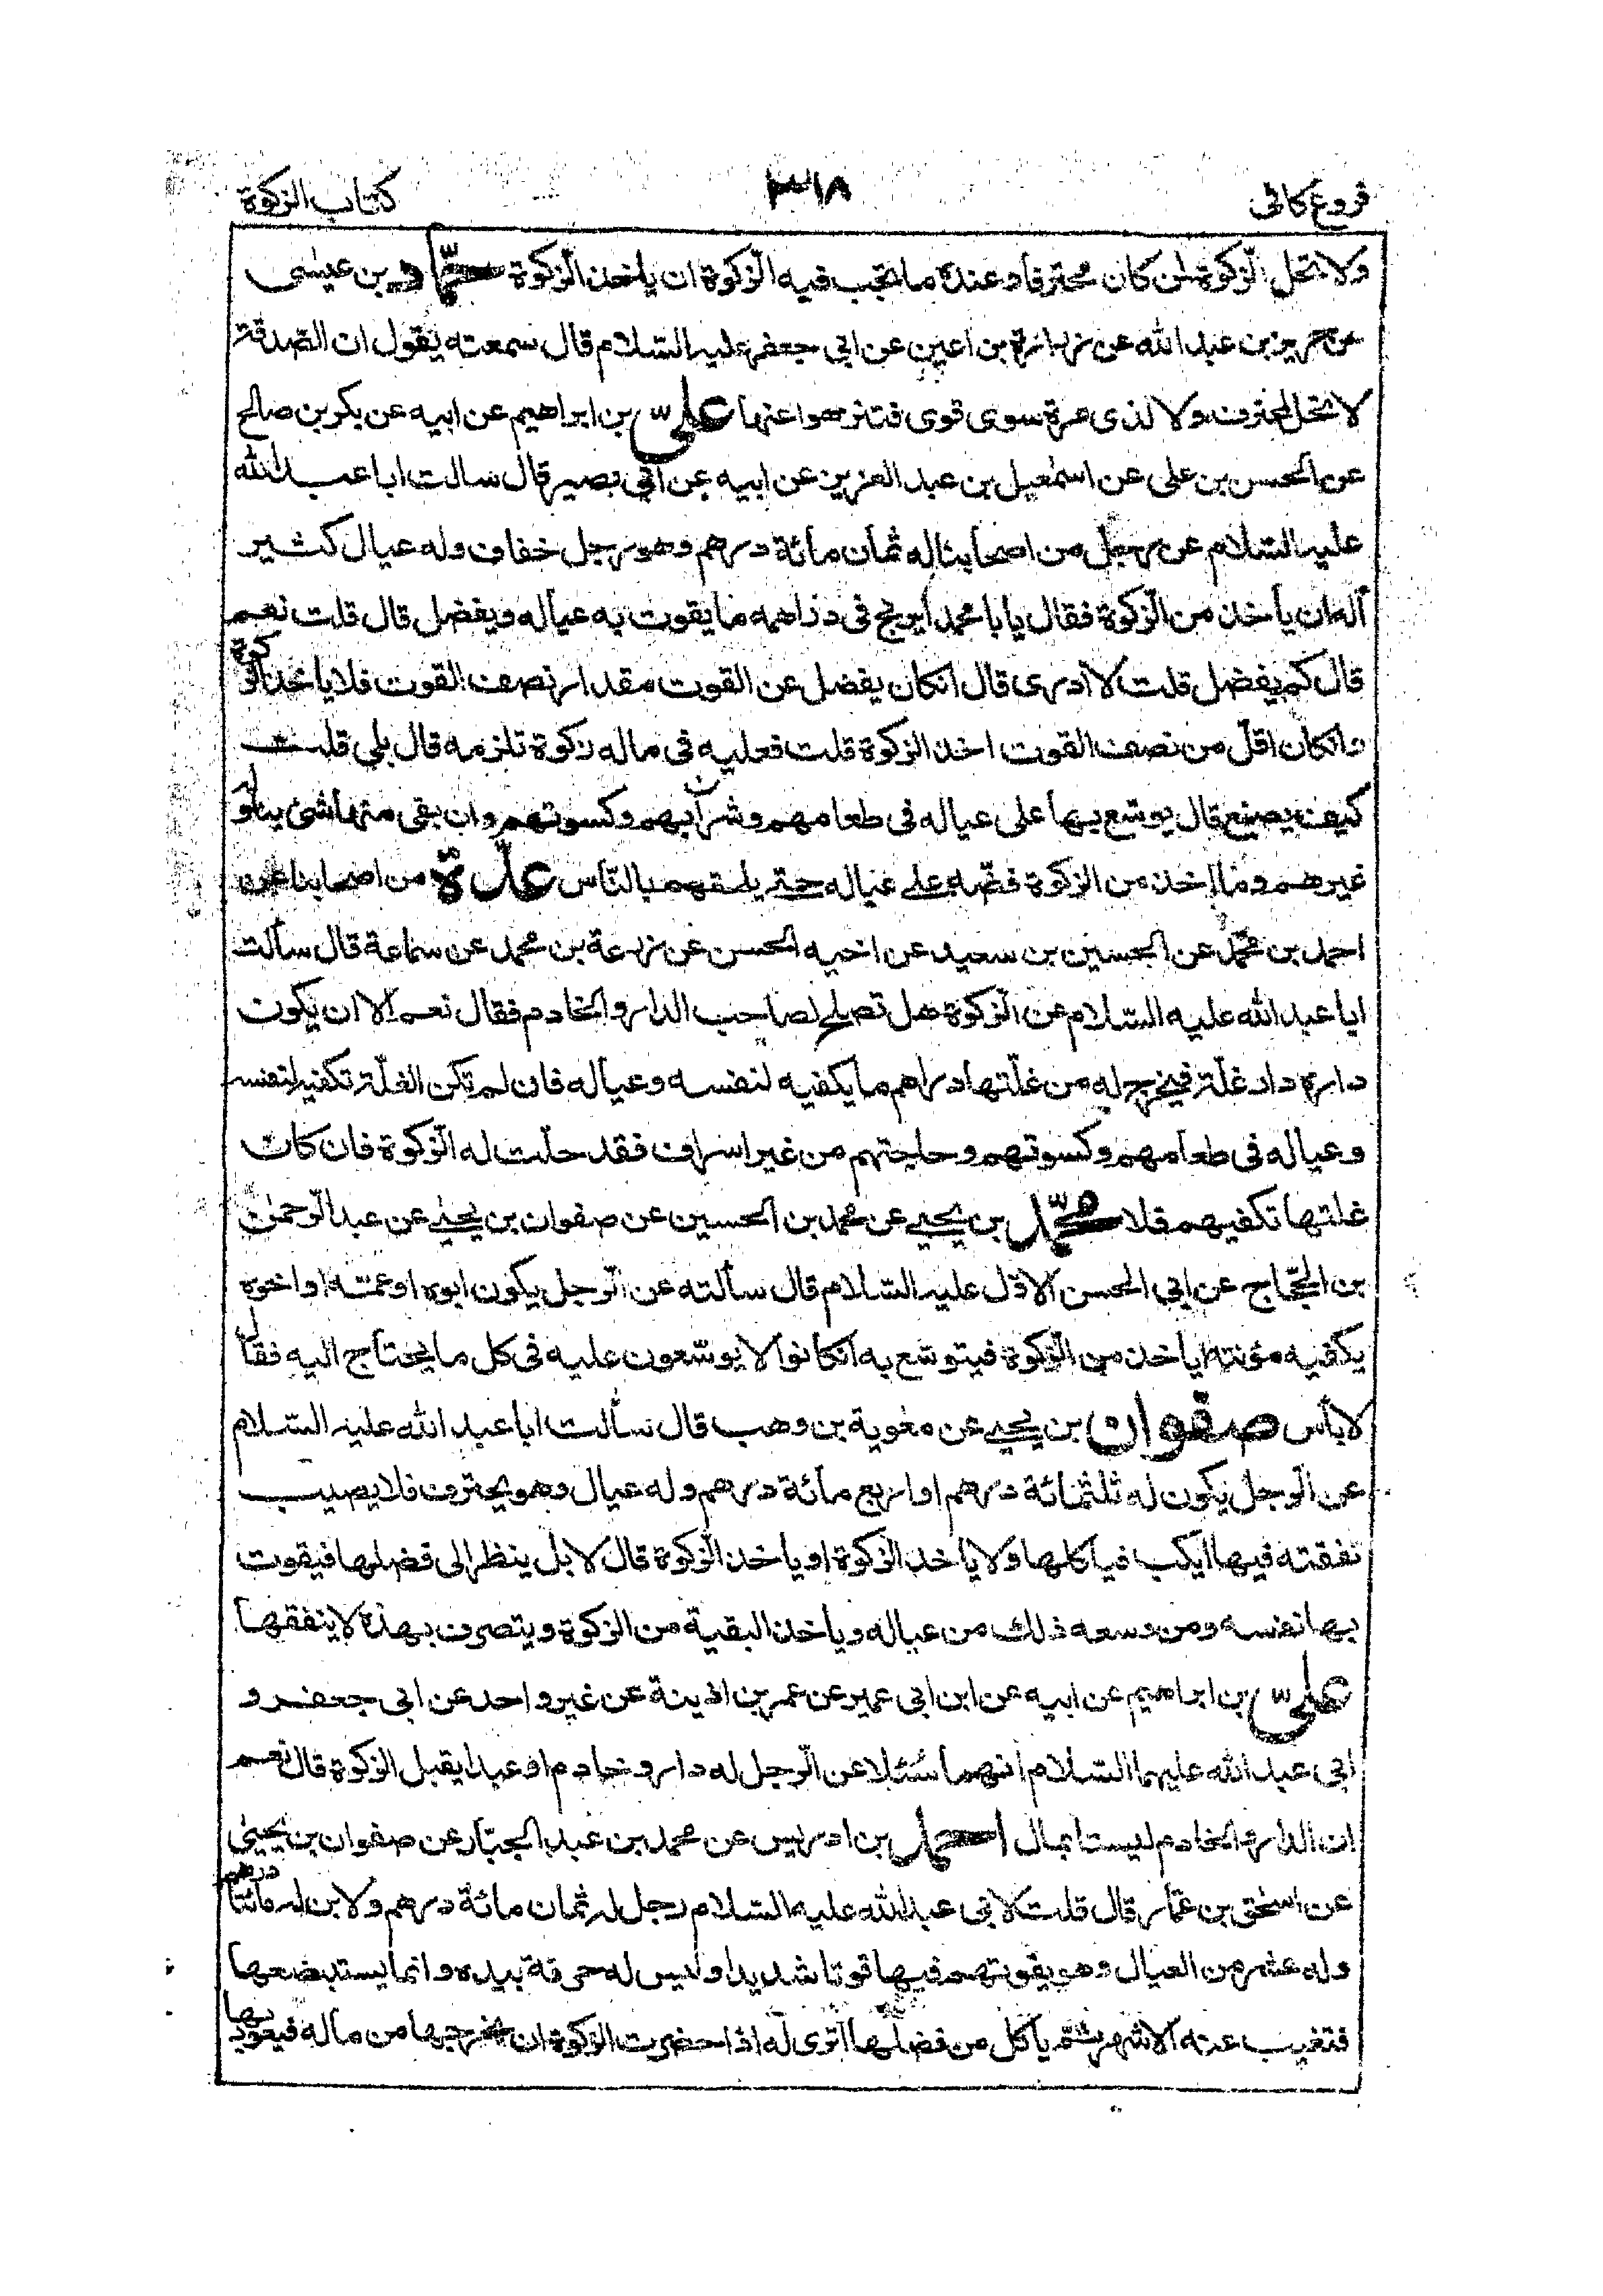 فروع كافى ٣١٨ كتاب الزكوة
ولا تحل الزّكوة لمن كان محترفا وعنده ما تجب فيه الزّكوة ان ياخذ الزّكوة حمّاد بن عيسى
عن حريز بن عبد الله عن زرارة بن اعين عن ابى جعفر عليه السّلام قال سمعته يقول ان الصّدقة
لا تحل لمحترف ولا لذى مرة سوى قوى فتنزهوا عنها علىّ بن ابراهيم عن ابيه عن بكر بن صالح
عن الحسن بن على عن اسمعيل بن عبد العزيز عن ابيه عن ابى بصير قال سالت ابا عبد الله
عليه السّلام عن رجل من اصحابنا له ثمان مائة درهم وهو رجل خفاف وله عيال كثير
أله ان يأخذ من الزّكوة فقال يا با محمد ايربح فى دراهمه ما يقوت به عياله ويفضل قال قلت نعم
قال كم يفضل قلت لا أدرى قال انكان يفضل عن القوت مقدار نصف القوت فلا ياخذ الزكوة
وانكان اقلّ من نصف القوت اخذ الزكوة قلت فعليه فى ماله زكوة تلزمه قال بلى قلت
كيف يصنع قال يوسّع بها على عياله فى طعامهم وشرابهم وكسوتهم وان بقى منها شئ يناوله
غيرهم وما اخذ من الزكوة فضّه على عياله حتى يلحقهم بالنّاس عدّة من اصحابنا عن
احمد بن محمّد عن الحسين بن سعيد عن اخيه الحسن عن زرعة بن محمد عن سماعة قال سألت
ابا عبد الله عليه السّلام عن الزّكوة هل تصلح لصاحب الدار والخادم فقال نعم الا ان يكون
داره دار غلّة فيخرج له من غلّتها دراهم ما يكفيه لنفسه وعياله فان لم تكن الغلّة تكفيه لنفسه
وعياله فى طعامهم وكسوتهم وحاجتهم من غير اسراف فقد حلّت له الزّكوة فان كان
غلتها تكفيهم فلا محمّد بن يحيى عن محمد بن الحسين عن صفوان بن يحيى عن عبد الرّحمن
بن الحجّاج عن ابى الحسن الاوّل عليه السّلام قال سألته عن الرّجل يكون ابوه او عمّه او اخوه
يكفيه مؤنته اياخذ من الزّكوة فيتوسّع به انكانوا لا يوسّعون عليه فى كل ما يحتاج اليه فقال
لا بأس صفوان بن يحيى عن معوية بن وهب قال سألت ابا عبد الله عليه السّلام
عن الرّجل يكون له ثلثمائة درهم او اربع مائة درهم وله عيال وهو يحترف فلا يصيب
نفقته فيها ايكب فياكلها ولا ياخذ الزكوة او ياخذ الزّكوة قال لا بل ينظر الى فضلها فيقوت
بها نفسه ومن وسعه ذلك من عياله وياخذ البقية من الزكوة ويتصرف بهذه لا ينفقها
علىّ بن ابراهيم عن ابيه عن ابن ابى عمير عن عمر بن اذينة عن غير واحد عن ابى جعفر و
ابى عبد الله عليهما السّلام انهما سُئلا عن الرّجل له دار وخادم او عبد ايقبل الزكوة قال نعم
ان الدار والخادم ليستا بمال احمد بن ادريس عن محمد بن عبد الجبّار عن صفوان بن يحيى
عن اسحق بن عمّار قال قلت لابى عبد الله عليه السّلام رجل له ثمان مائة درهم ولابن له مائتا درهم
وله عشر من العيال وهو يقوتهم فيها قوتا شديدا وليس له حرفة بيده وانما يستبضعها
فتغيب عنه الاشهر ثمّ يأكل من فضلها اترى له اذا حضرت الزكوة ان يخرجها من ماله فيعود بها